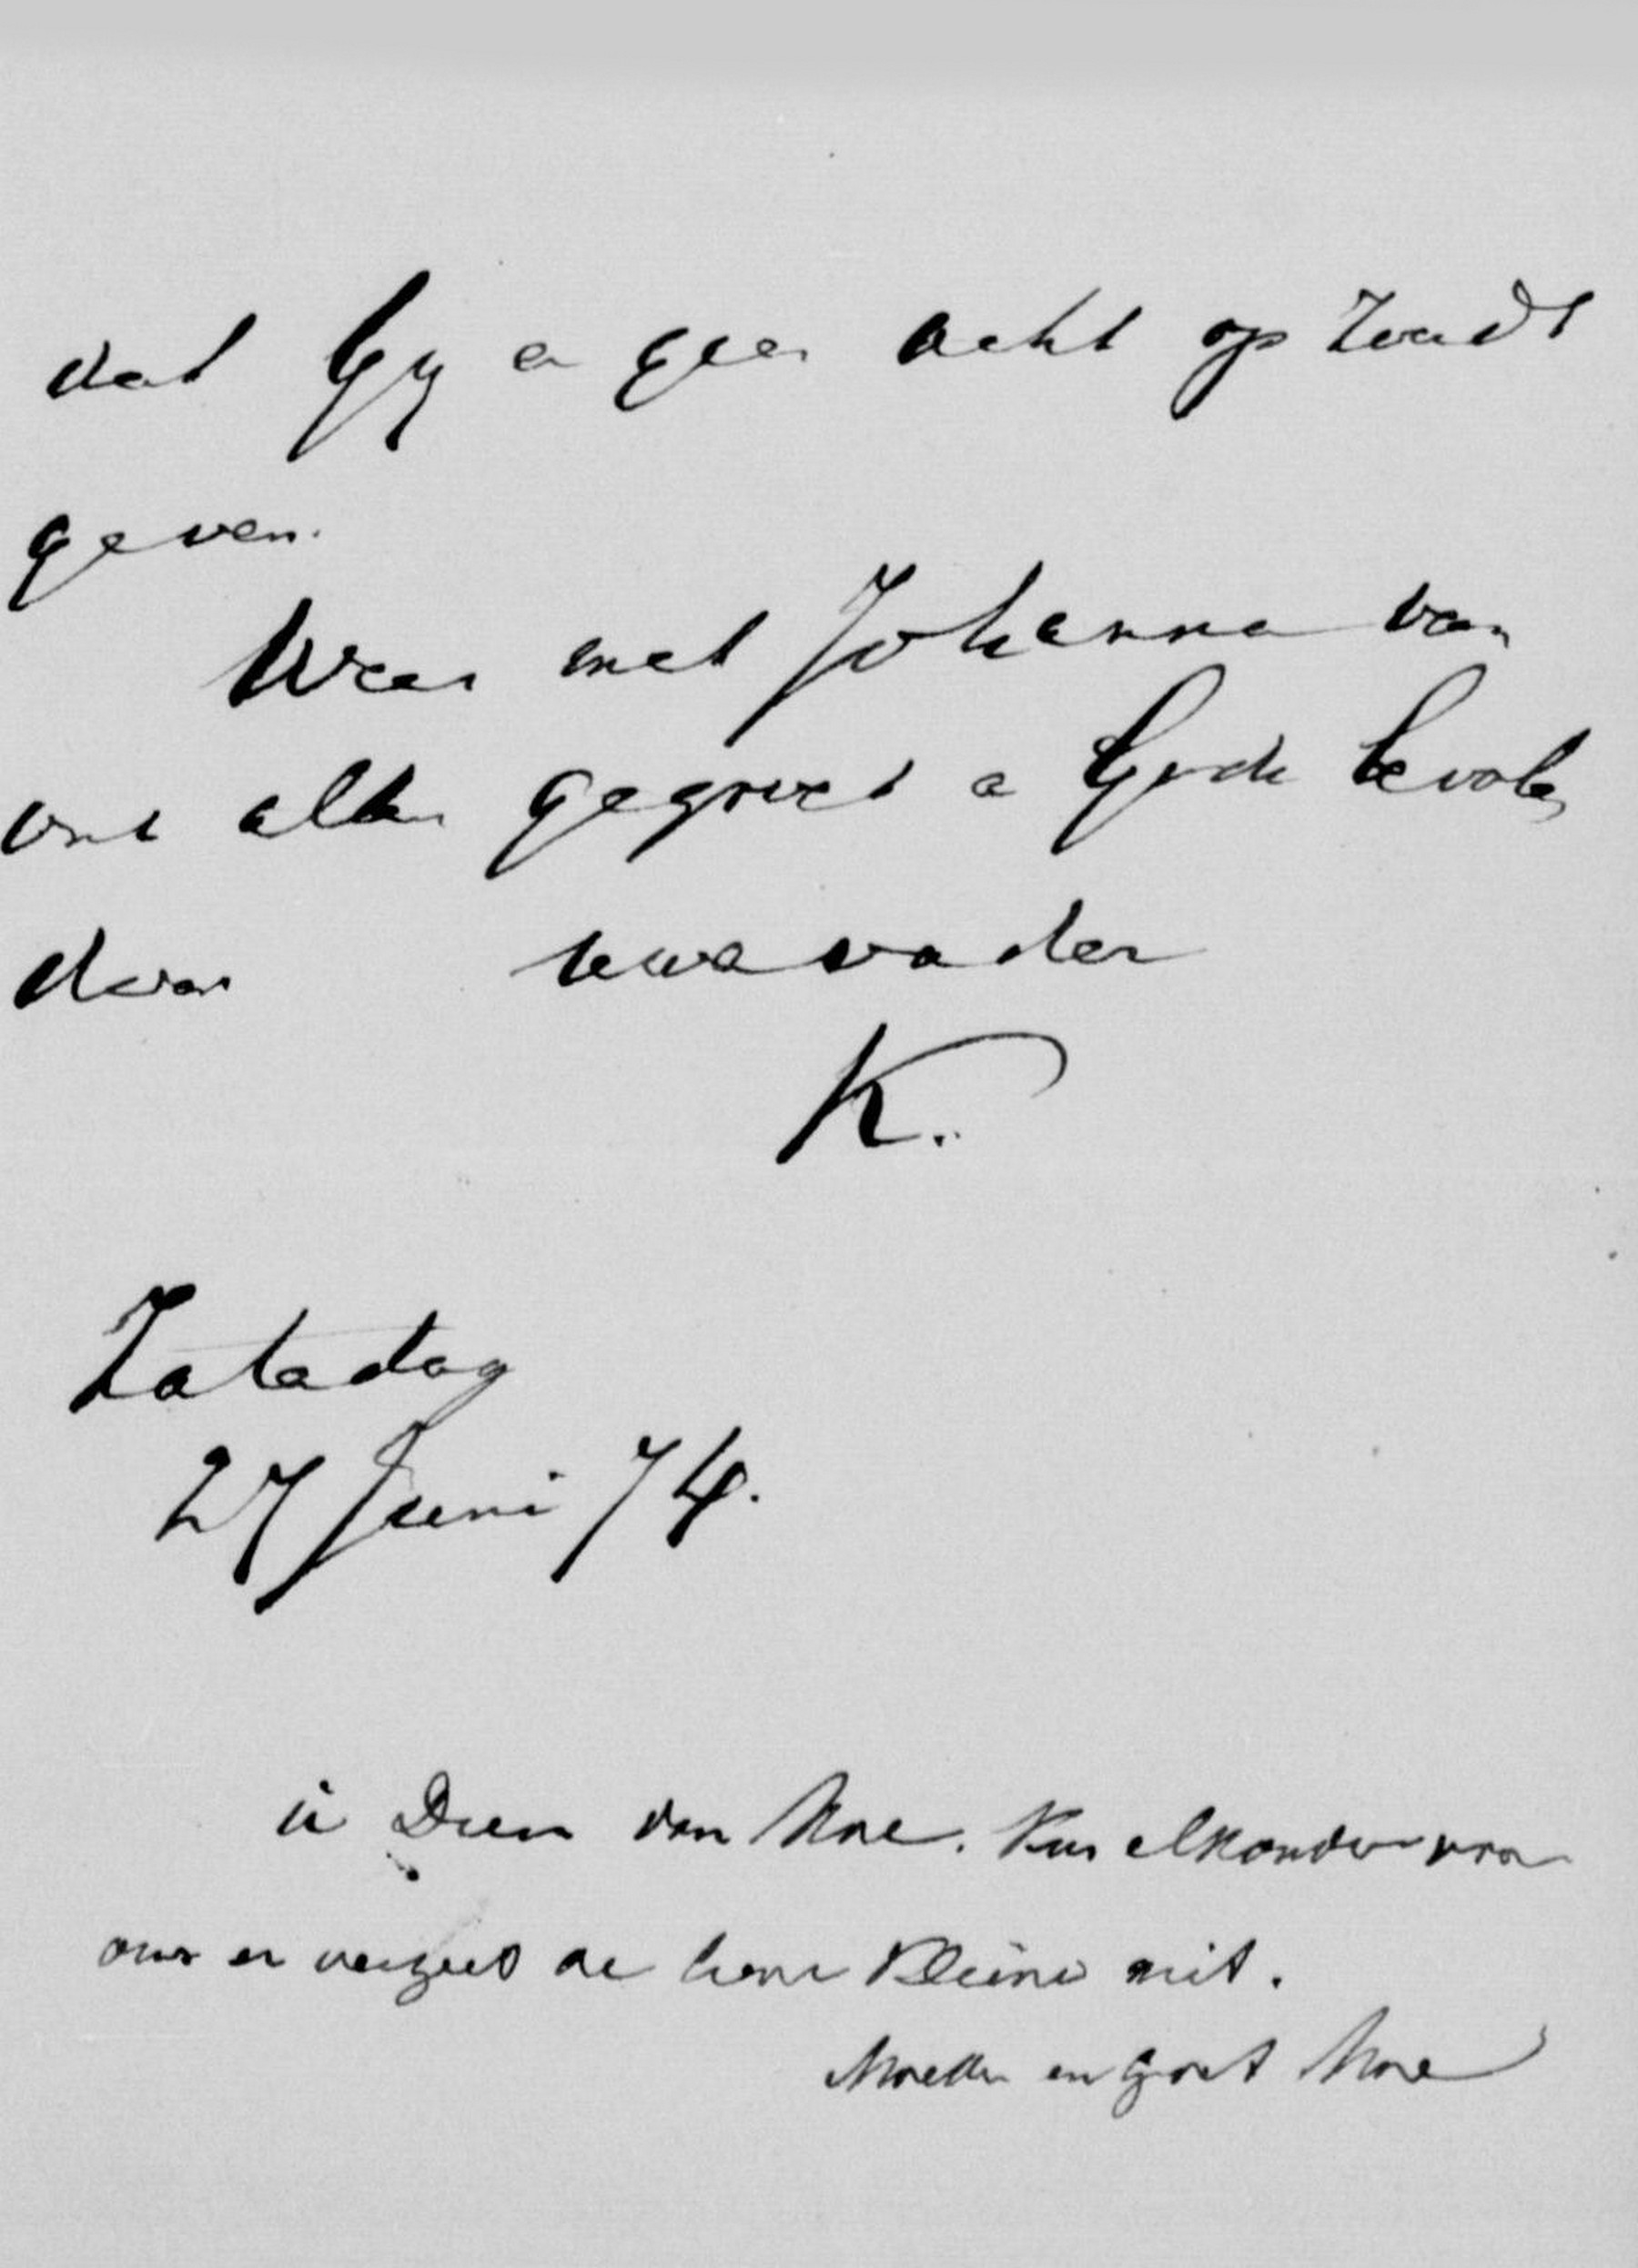 dat Gy er geen acht op zoudt
geven.
Wees met Johanna van
ons allen gegroet en Gode bevolen
door uwe vader
K.
Zaterdag
27 Juni 74.
Dien van Moe. Kus elkander voor
ons en vergeet de lieve Kleine niet.
Moeder en Groot Moe